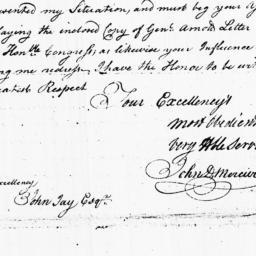 my Situation, and must beg your
laying the inclosed Copy of Genl. Arnolds Letter
Honble Congress; as likewise your Influence
me redress, I have the Honor to be with
Respect
Your Excellency's
most Obedient
very Hble Serv
John D. Mercier
Excellency
John Jay Esqr.